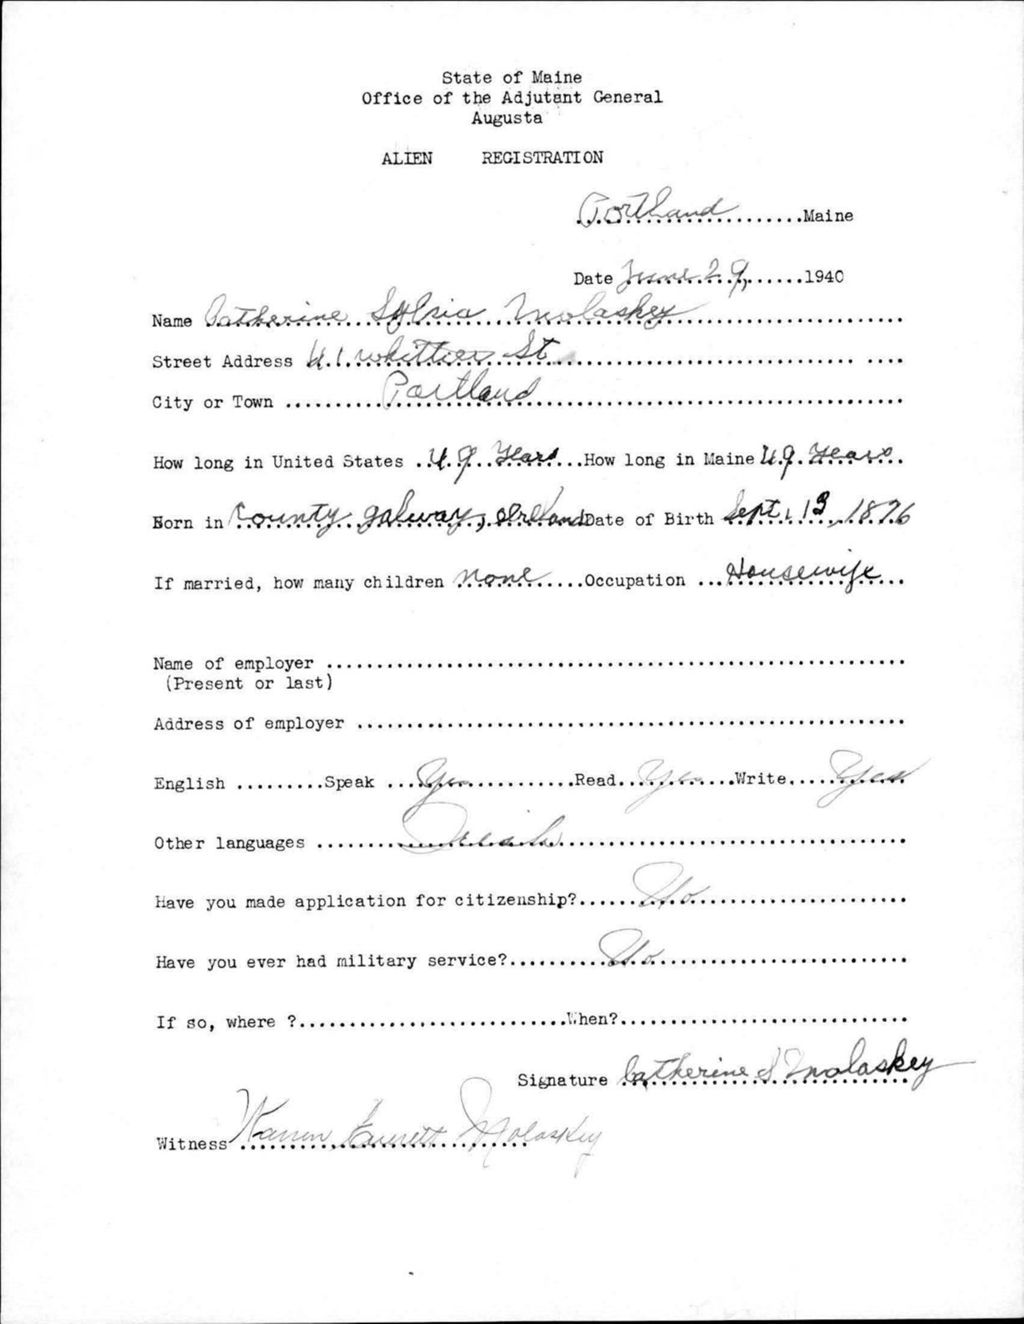 State of Maine
Office of the Adjutant General
Augusta
ALIEN REGISTRATION
Portland Maine
Date June 29, 1940
Name Catherine Sylvia Molaskey
Street Address 41 Whittier St
City or Town Portland
How long in United States 49 Years How long in Maine 49 Years
Born in County Galway, Ireland Date of Birth Sept. 13, 1876
If married, how many children none Occupation Housewife
Name of employer
(Present or last)
Address of employer
English Speak Yes Read Yes Write Yes
Other languages Irish
Have you made application for citizenship? No
Have you ever had military service? No
If so, where ? When?
Signature Catherine S Molaskey
Witness Warren Everett Molaskey